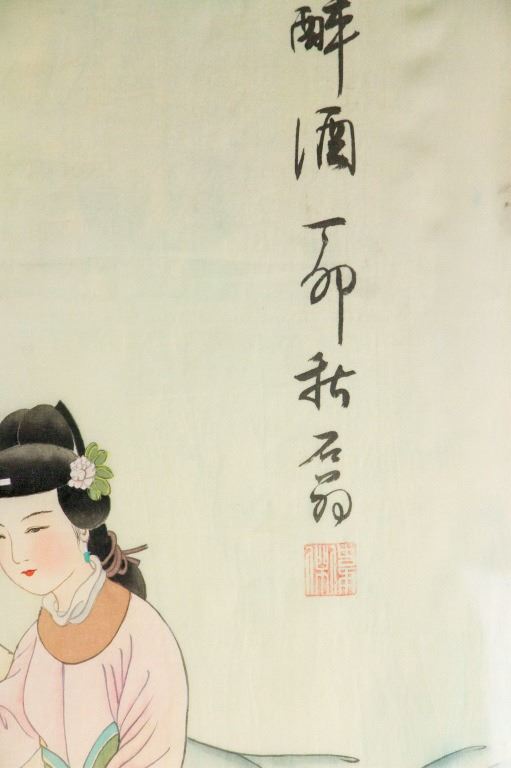 醉酒丁卯秋石翁